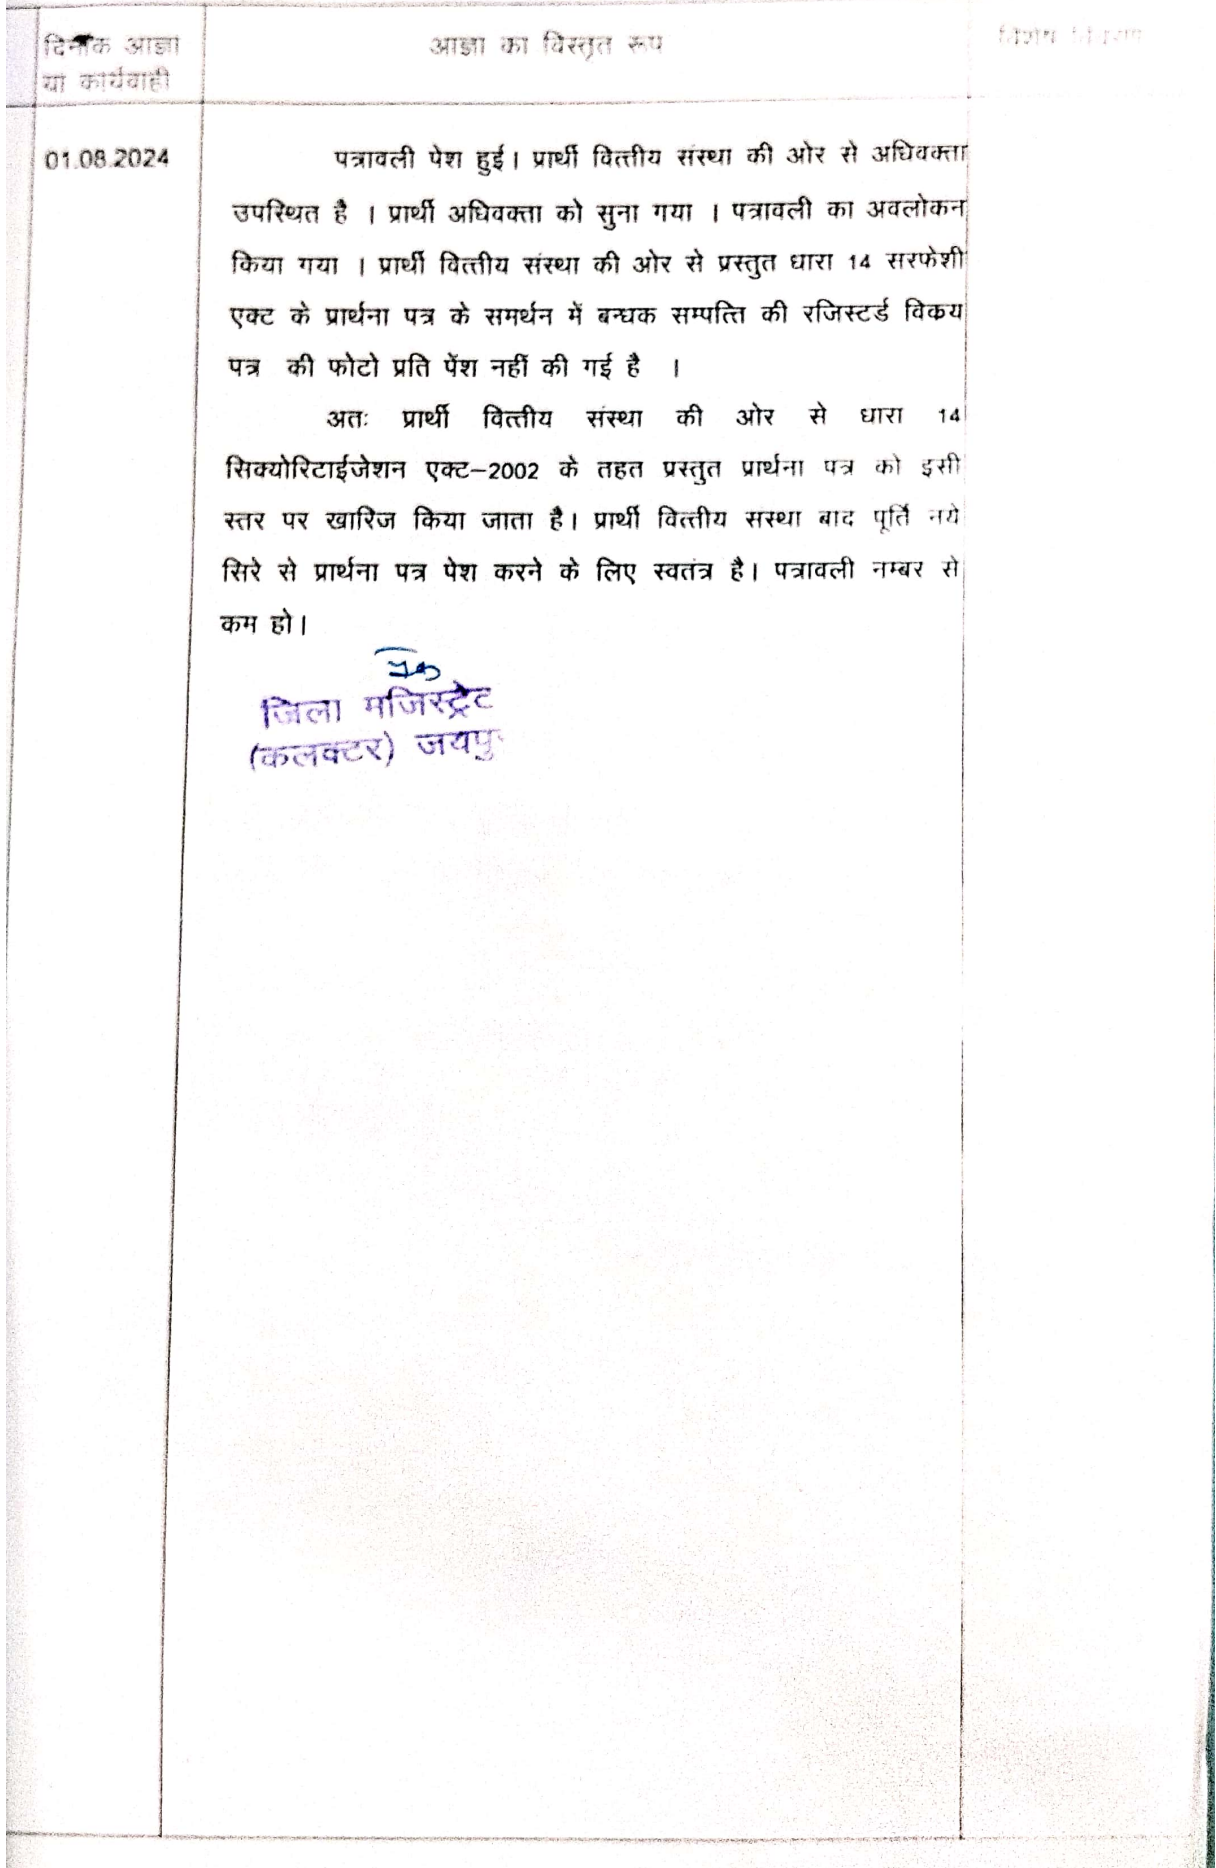 दिनाँक आज्ञा
या कार्यवाही
आज्ञा का विस्तृत रूप
विशेष
01.08.2024
पत्रावली पेश हुई। प्रार्थी वित्तीय संस्था की ओर से अधिवक्ता
उपस्थित है । प्रार्थी अधिवक्ता को सुना गया । पत्रावली का अवलोकन
किया गया । प्रार्थी वित्तीय संस्था की ओर से प्रस्तुत धारा 14 सरफेशी
एक्ट के प्रार्थना पत्र के समर्थन में बन्धक सम्पत्ति की रजिस्टर्ड विकय
पत्र की फोटो प्रति पेंश नहीं की गई है ।
अतः प्रार्थी वित्तीय संस्था की ओर से धारा 14
सिक्योरिटाईजेशन एक्ट–2002 के तहत प्रस्तुत प्रार्थना पत्र को इसी
स्तर पर खारिज किया जाता है। प्रार्थी वित्तीय संस्था बाद पूर्ति नये
सिरे से प्रार्थना पत्र पेश करने के लिए स्वतंत्र है। पत्रावली नम्बर से
कम हो।
जिला मजिस्ट्रेट
(कलक्टर) जयपु